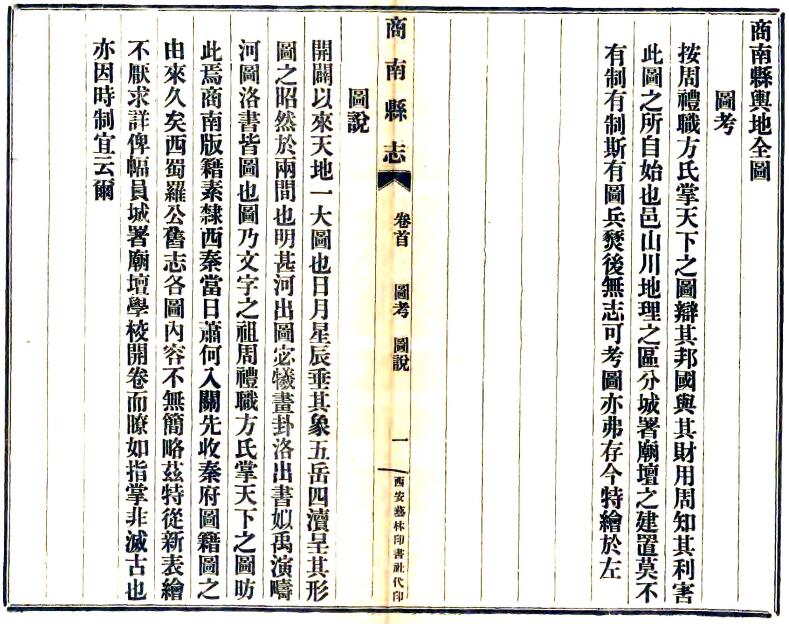 商南縣輿地全圖
圖考
按周禮職方氏掌天下之圖辯其邦國與其財用周知其利害
此圖之所自始也邑山川地理之區分城署廟壇之建置莫不
有制有制斯有圖兵燹後無志可考圖亦弗存今特繪於左
商南縣志
卷首 圖考 圖說 一
西安藝林印書社代印
圖說
開闢以來天地一大圖也日月星辰垂其象五岳四瀆呈其形
圖之昭然於兩間也明甚河出圖宓犧畫卦洛出書姒禹演疇
河圖洛書皆圖也圖乃文字之祖周禮職方氏掌天下之圖昉
此焉商南版籍素隸西秦當日蕭何入關先收秦府圖籍圖之
由來久矣西蜀羅公舊志各圖內容不無簡略茲特從新表繪
不厭求詳俾幅員城署廟壇學校開卷而瞭如指掌非滅古也
亦因時制宜云爾